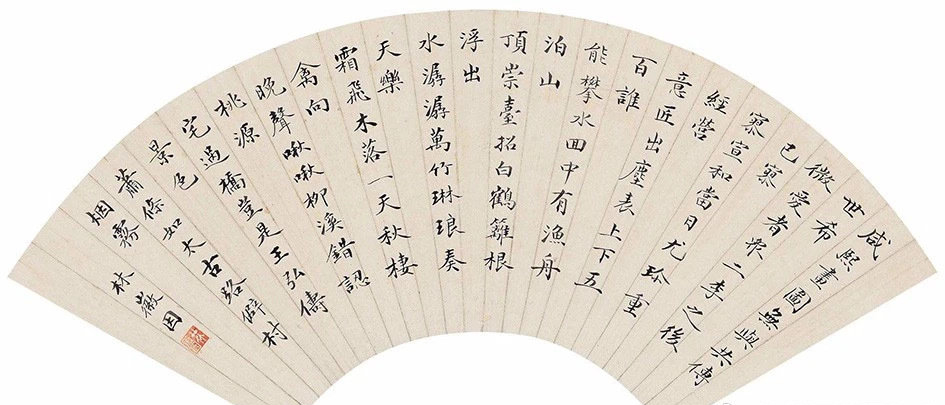 咸熙畫圖無與共傳
世希
微愛者眾二李之後
已寡
寡宣和當日尤珍重
經營
意匠出塵表上下五
百誰
能攀水回中有漁舟
泊山
頂崇臺招白鶴籬根
浮出
水潺潺萬竹琳琅奏
天樂
霜飛木落一天秋棲
禽向
晚聲啾啾柳溪錯認
桃源
宅過橋豈是王弘儔
景色
蕭條如太古路僻村
烟霧
林徽因